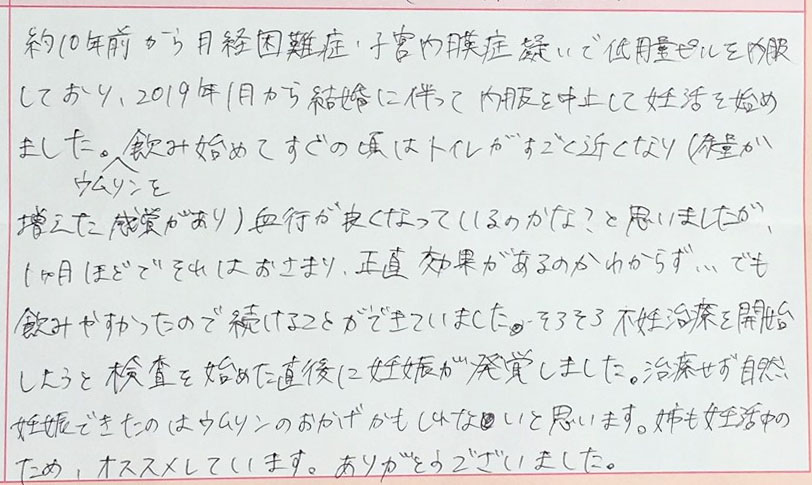 約10年前から月経困難症・子宮内膜症疑いで低用量ピルを内服
しており、2019年1月から結婚に伴って内服を中止して妊活を始め
ました。飲み始めてすぐの頃はトイレがすごく近くなり(尿量が
ウムリンを
増えた感覚があり)血行が良くなっているのかな?と思いましたが、
1ヶ月ほどでそれはおさまり、正直効果があるのかわからず…でも
飲みやすかったので続けることができていました。そろそろ不妊治療を開始
しようと検査を始めた直後に妊娠が発覚しました。治療せず自然
妊娠できたのはウムリンのおかげかもしれないと思います。姉も妊活中の
ため、オススメしています。ありがとうございました。